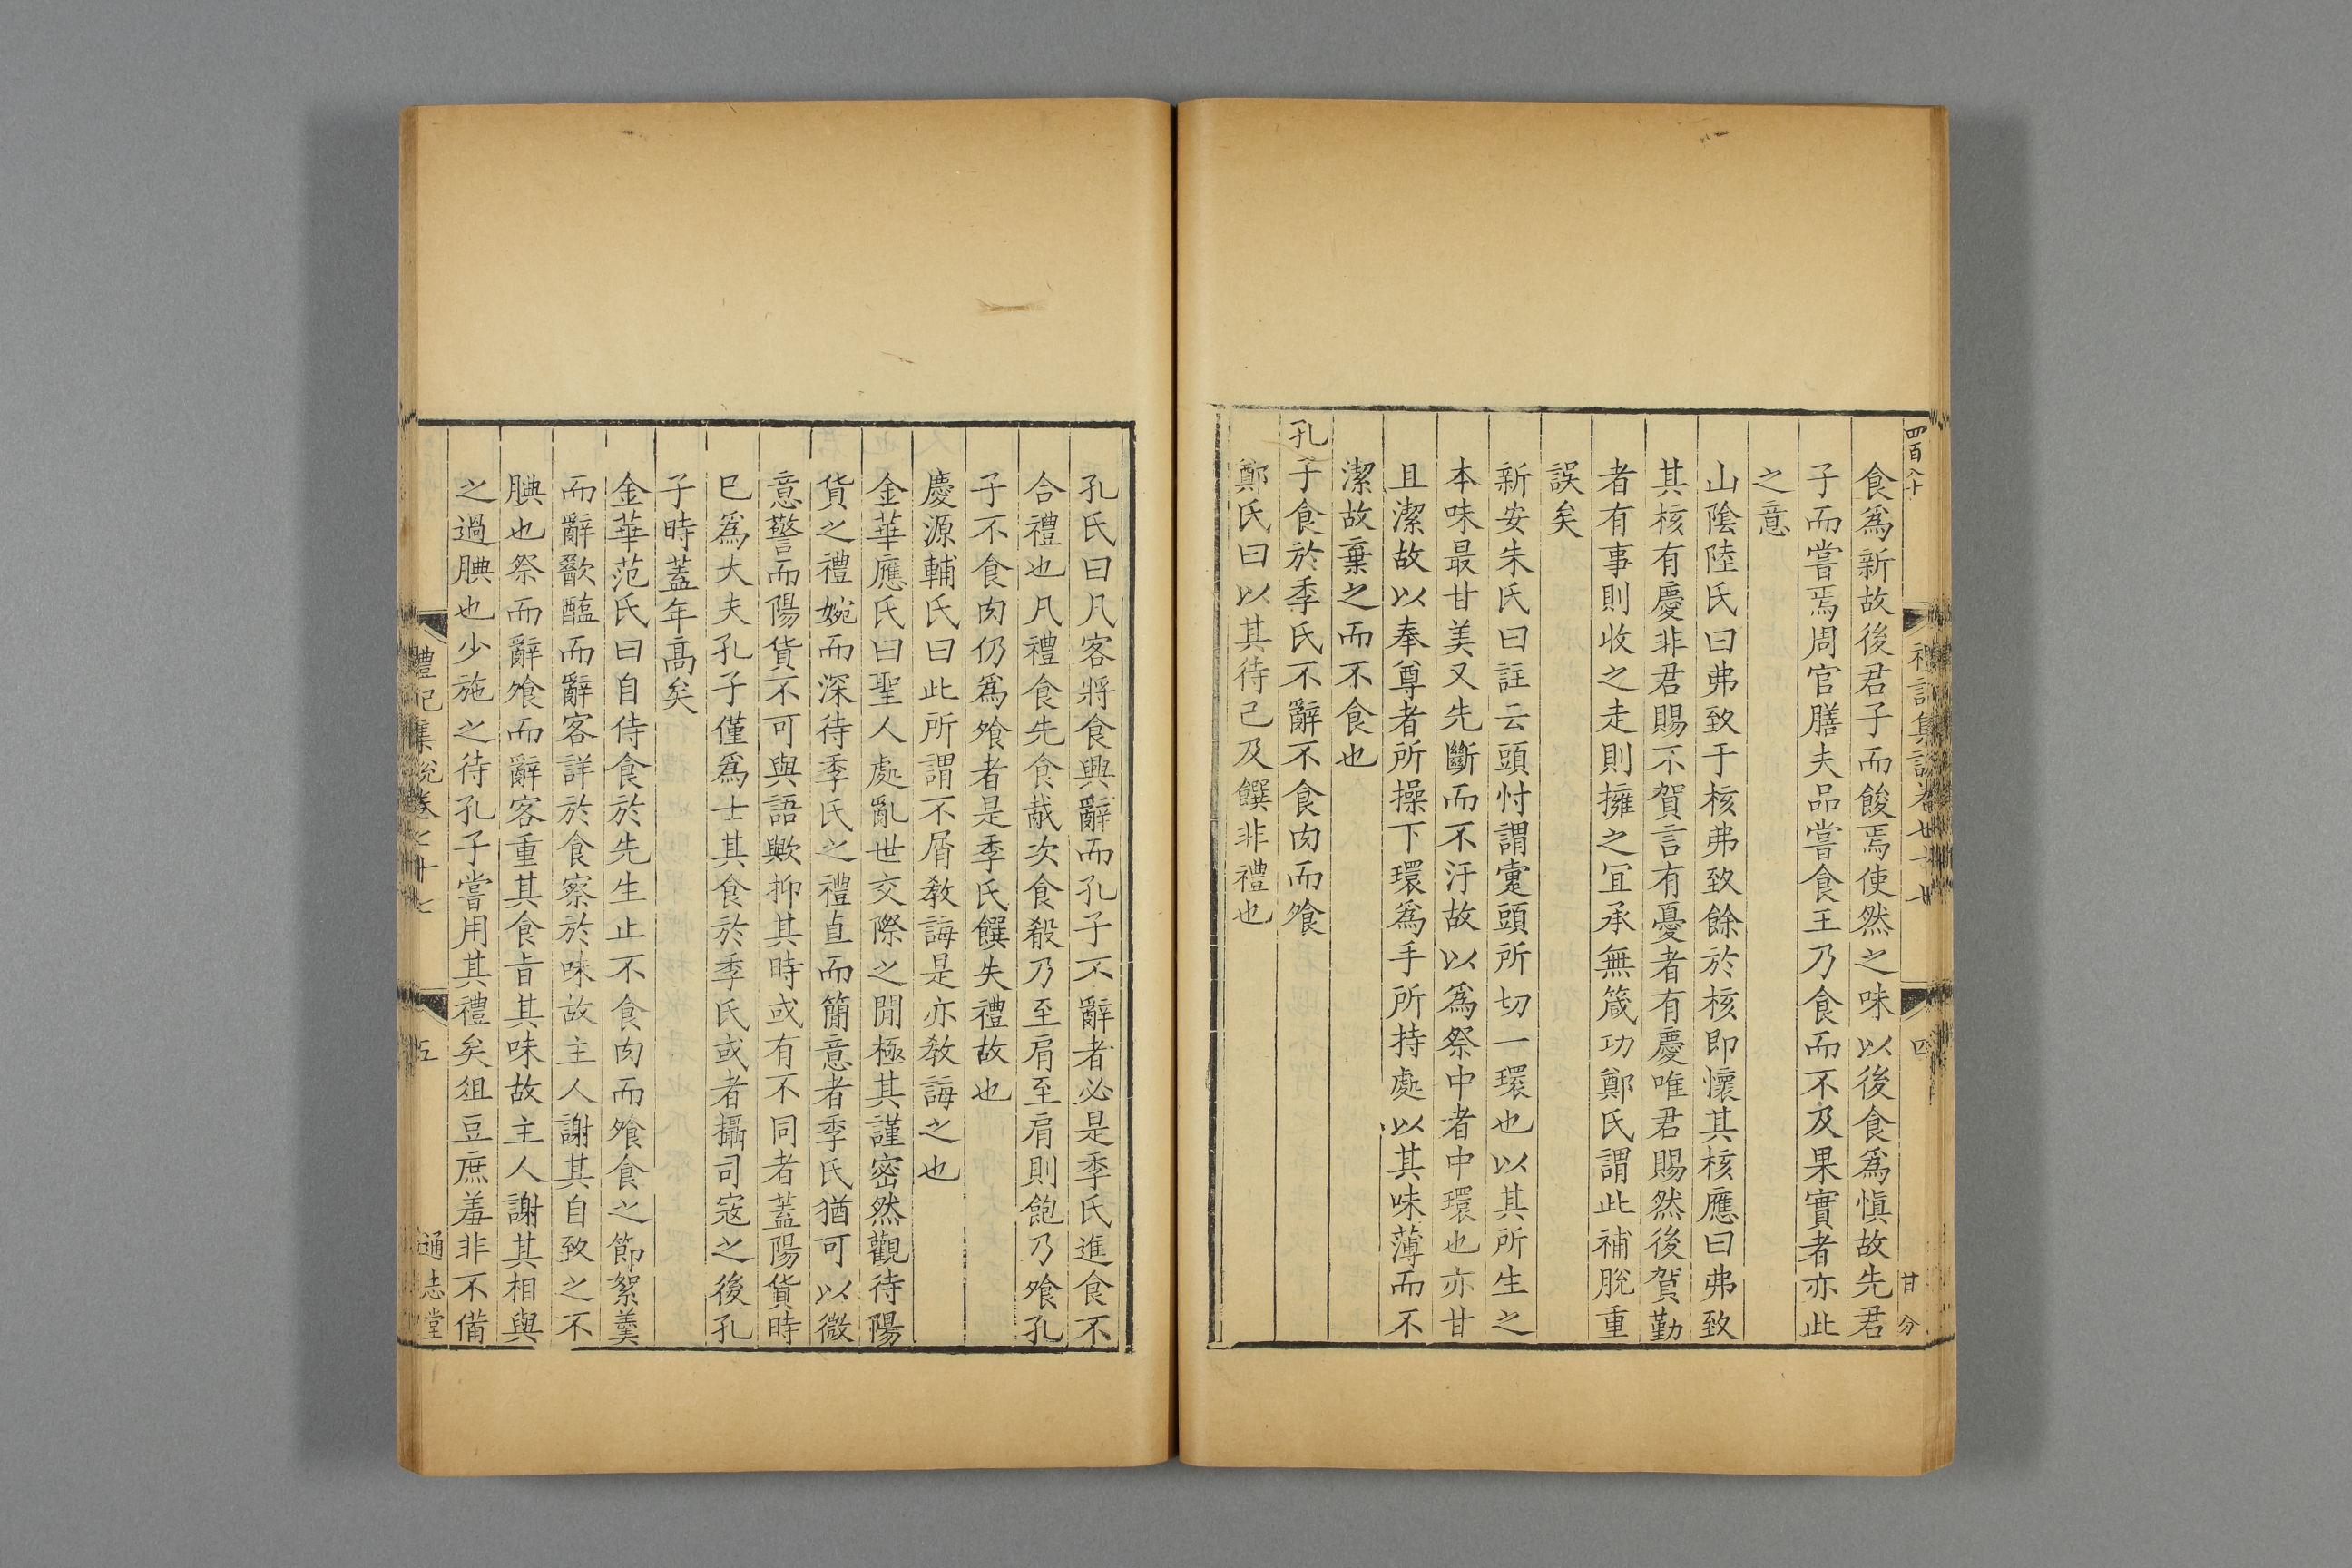 四百八十
食爲新故後君子而餕焉使然之味以後食爲愼故先君
子而嘗焉周官膳夫品嘗食王乃食而不及果實者亦此
之意
山陰陸氏曰弗致于核弗致餘於核即懷其核應曰弗致
其核有慶非君賜不賀言有憂者有慶唯君賜然後賀勤
者有事則收之走則擁之冝承無箴功鄭氏謂此補脫重
誤矣
新安朱氏曰註云頭忖謂疐頭所切一環也以其所生之
本味最甘美又先斷而不汙故以爲祭中者中環也亦甘
且潔故以奉尊者所操下環爲手所持處以其味薄而不
潔故棄之而不食也
孔子食於季氏不辭不食肉而飱
鄭氏曰以其待己及饌非禮也
孔氏曰凡客將食興辭而孔子不辭者必是季氏進食不
合禮也凡禮食先食胾次食殽乃至肩至肩則飽乃飱孔
子不食肉仍爲飱者是季氏饌失禮故也
慶源輔氏曰此所謂不屑敎誨是亦敎誨之也
金華應氏曰聖人處亂世交際之閒極其謹密然觀待陽
貨之禮婉而深待季氏之禮直而簡意者季氏猶可以微
意警而陽貨不可與語歟抑其時或有不同者蓋陽貨時
已爲大夫孔子僅爲士其食於季氏或者攝司寇之後孔
子時蓋年高矣
金華范氏曰自侍食於先生止不食肉而飱食之節絮羹
而辭歠醢而辭客詳於食察於味故主人謝其自致之不
腆也祭而辭飱而辭客重其食旨其味故主人謝其相與
之過腆也少施之待孔子嘗用其禮矣俎豆庶羞非不備
禮記集說卷之十七
五
通志堂